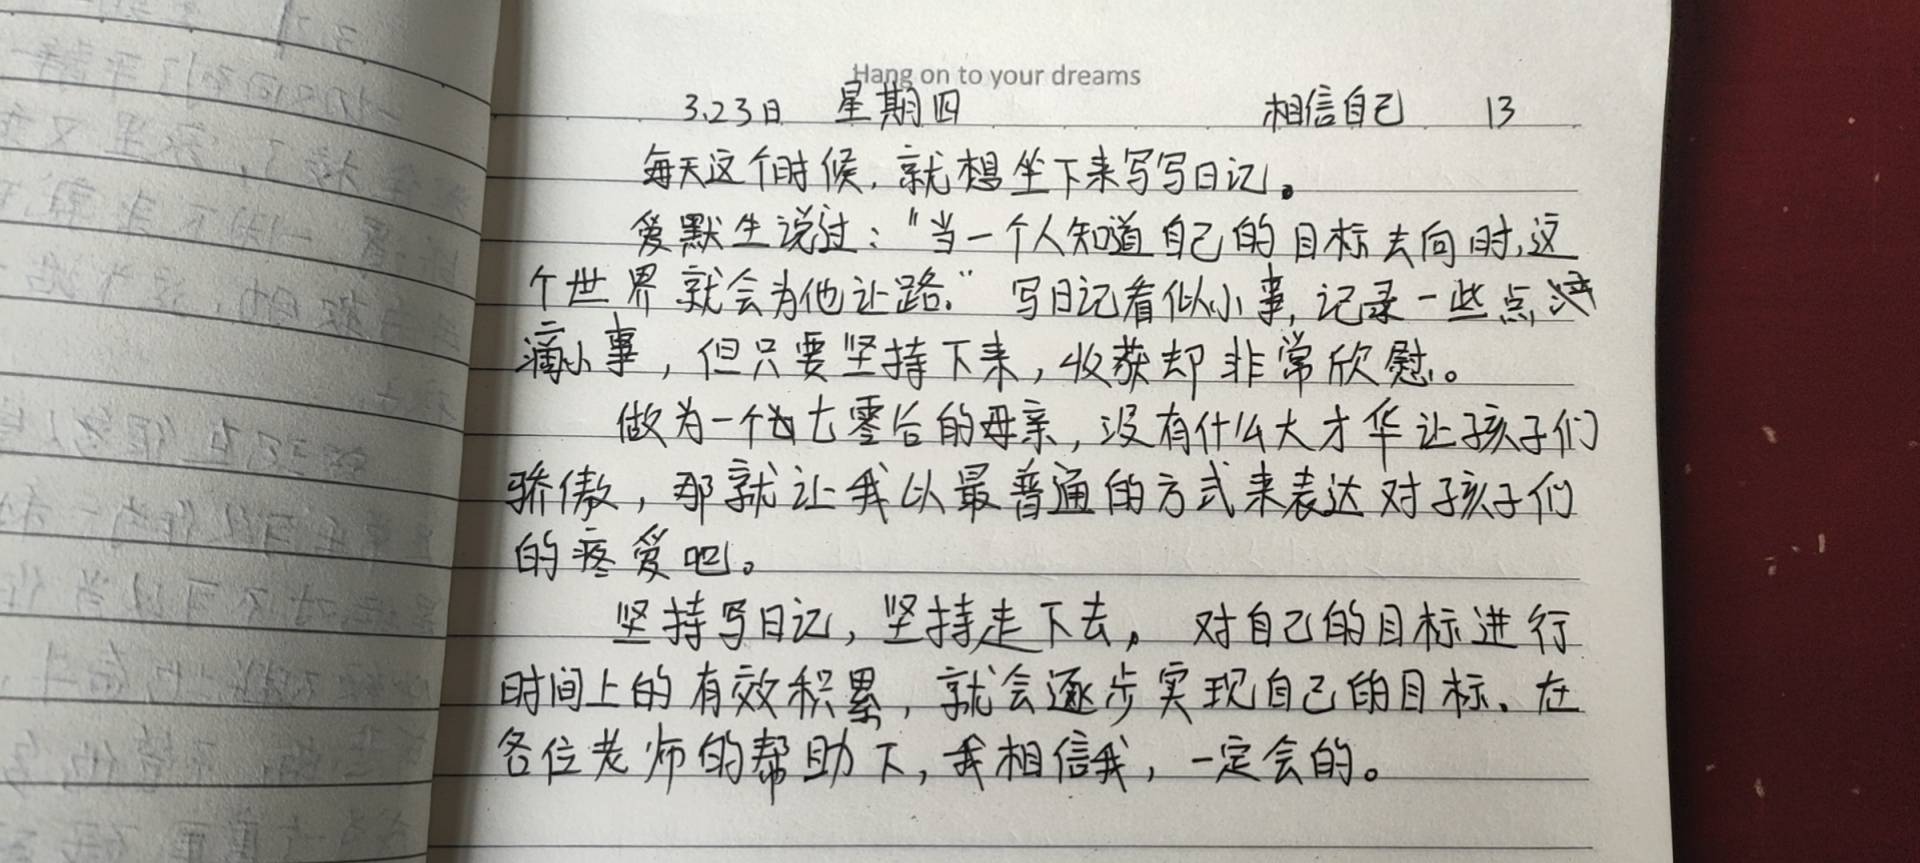 Hang on to your dreams
3.23日 星期四 相信自己 13
每天这个时候,就想坐下来写写日记。
爱默生说过:"当一个人知道自己的目标去向时,这
个世界就会为他让路."写日记看似小事,记录一些点
滴小事,但只要坚持下来,收获却非常欣慰。
做为一个七零后的母亲,没有什么大才华让孩子们
骄傲,那就让我以最普通的方式来表达对孩子们
的疼爱吧。
坚持写日记,坚持走下去。对自己的目标进行
时间上的有效积累,就会逐步实现自己的目标.在
各位老师的帮助下,我相信我,一定会的。